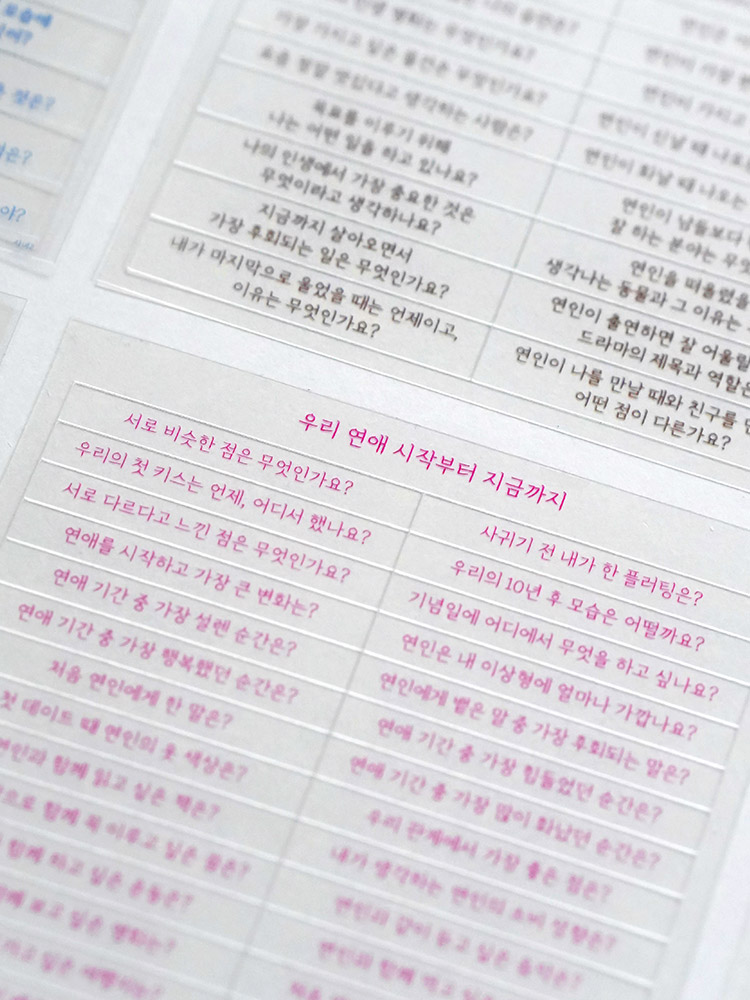 모습에
것은?
가장 가지고 싶은 물건은 무엇인가요?
요즘 정말 멋있다고 생각하는 사람은?
목표를 이루기 위해
나는 어떤 일을 하고 있나요?
나의 인생에서 가장 중요한 것은
무엇이라고 생각하나요?
지금까지 살아오면서
가장 후회되는 일은 무엇인가요?
내가 마지막으로 울었을 때는 언제이고,
이유는 무엇인가요?
연인이 가장
연인이 가지고
연인이 신날 때 나오
연인이 화날 때 나오는
연인이 남들보다
잘 하는 분야는
연인을 떠올렸을
생각나는 동물과 그 이유는
연인이 출연하면 잘 어울릴
드라마의 제목과 역할은
연인이 나를 만날 때와 친구를
어떤 점이 다른가요?
우리 연애 시작부터 지금까지
서로 비슷한 점은 무엇인가요?
우리의 첫 키스는 언제, 어디서 했나요?
서로 다르다고 느낀 점은 무엇인가요?
연애를 시작하고 가장 큰 변화는?
연애 기간 중 가장 설렌 순간은?
연애 기간 중 가장 행복했던 순간은?
처음 연인에게 한 말은?
첫 데이트 때 연인의 옷 색상은?
연인과 함께 읽고 싶은 책은?
함께 꼭 이루고 싶은 꿈은?
함께 하고 싶은 운동은?
함께 보고 싶은 영화는?
가고 싶은 여행지는?
사귀기 전 내가 한 플러팅은?
우리의 10년 후 모습은 어떨까요?
기념일에 어디에서 무엇을 하고 싶나요?
연인은 내 이상형에 얼마나 가깝나요?
연인에게 뱉은 말 중 가장 후회되는 말은?
연애 기간 중 가장 힘들었던 순간은?
연애 기간 중 가장 많이 화났던 순간은?
우리 관계에서 가장 좋은 점은?
내가 생각하는 연인의 소비 성향은?
연인과 같이 듣고 싶은 음악은?
연인과 함께 먹고 싶은
처음